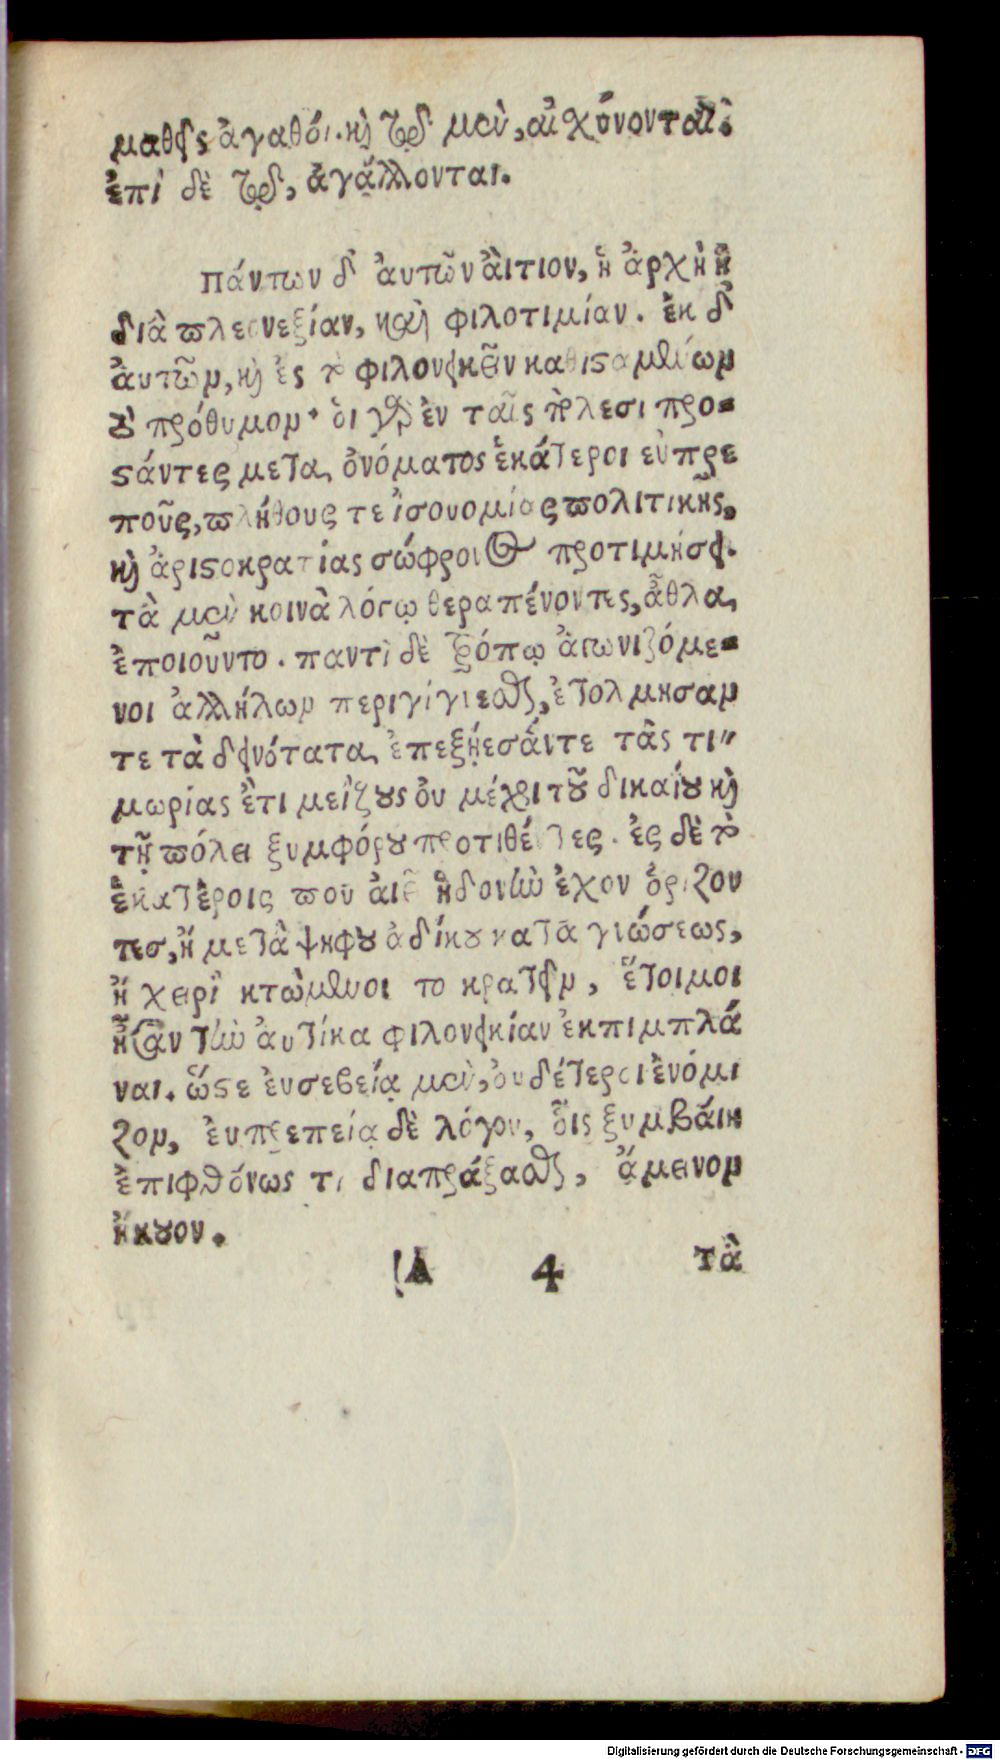 μαθεῖς ἀγαθόι. κὴ τῷδε μὲν, αἰσχύνονται.
ἐπὶ δὲ τῷδε, ἀγάλλονται.
πάντων δ' ἀυτῶν ἄιτιον, ἡ ἀρχὴ ἡ
διὰ πλεονεξίαν, καὶ φιλοτιμίαν. ἐκ δ'
ἀυτῶν, καὶ ἐς τὸ φιλονεικεῖν καθισαμένων
τὸ πρόθυμον. ὁι γὰρ ἐν ταῖς πόλεσι προ-
στάντες μετὰ ὀνόματος ἑκάτεροι εὐπρε
ποῦς, πλήθους τε ἰσονομίας πολιτικῆς,
καὶ ἀριστοκρατίας σώφρονος προτιμήσει.
τὰ μὲν κοινὰ λόγῳ θεραπένοντες, ἆθλα
ἐποιοῦντο. παντὶ δὲ τρόπῳ ἀγωνιζόμε-
νοι ἀλλήλων περιγίγνεσθαι, ἐτόλμησαν
τε τὰ δεινότατα, ἐπεξῄεσάν τε τὰς τι-
μωρίας ἔτι μείζους ὀυ μέχρι τοῦ δικαίου καὶ
τῇ πόλει ξυμφόρου προτιθέντες. ἐς δὲ τὸ
ἑκατέροις που ἀιεὶ ἡδονὴν ἔχον ὁρίζον
τες, ἢ μετὰ ψήφου ἀδίκου καταγνώσεως,
ἢ χειρὶ κτώμενοι το κρατεῖν, ἕτοιμοι
ἦσαν τὴν ἀυτίκα φιλονεικίαν ἐκπιμπλά
ναι. ὥστε ἐυσεβείᾳ μὲν, ὀυδέτεροι ἐνόμι
ζον, ἐυπρεπείᾳ δὲ λόγου, ὅις ξυμβάιη
ἐπιφθόνως τι διαπράξασθαι, ἄμεινον
ἤκουον.
A 4 τὰ
Digitalisierung gefördert durch die Deutsche Forschungsgemeinschaft - DFG